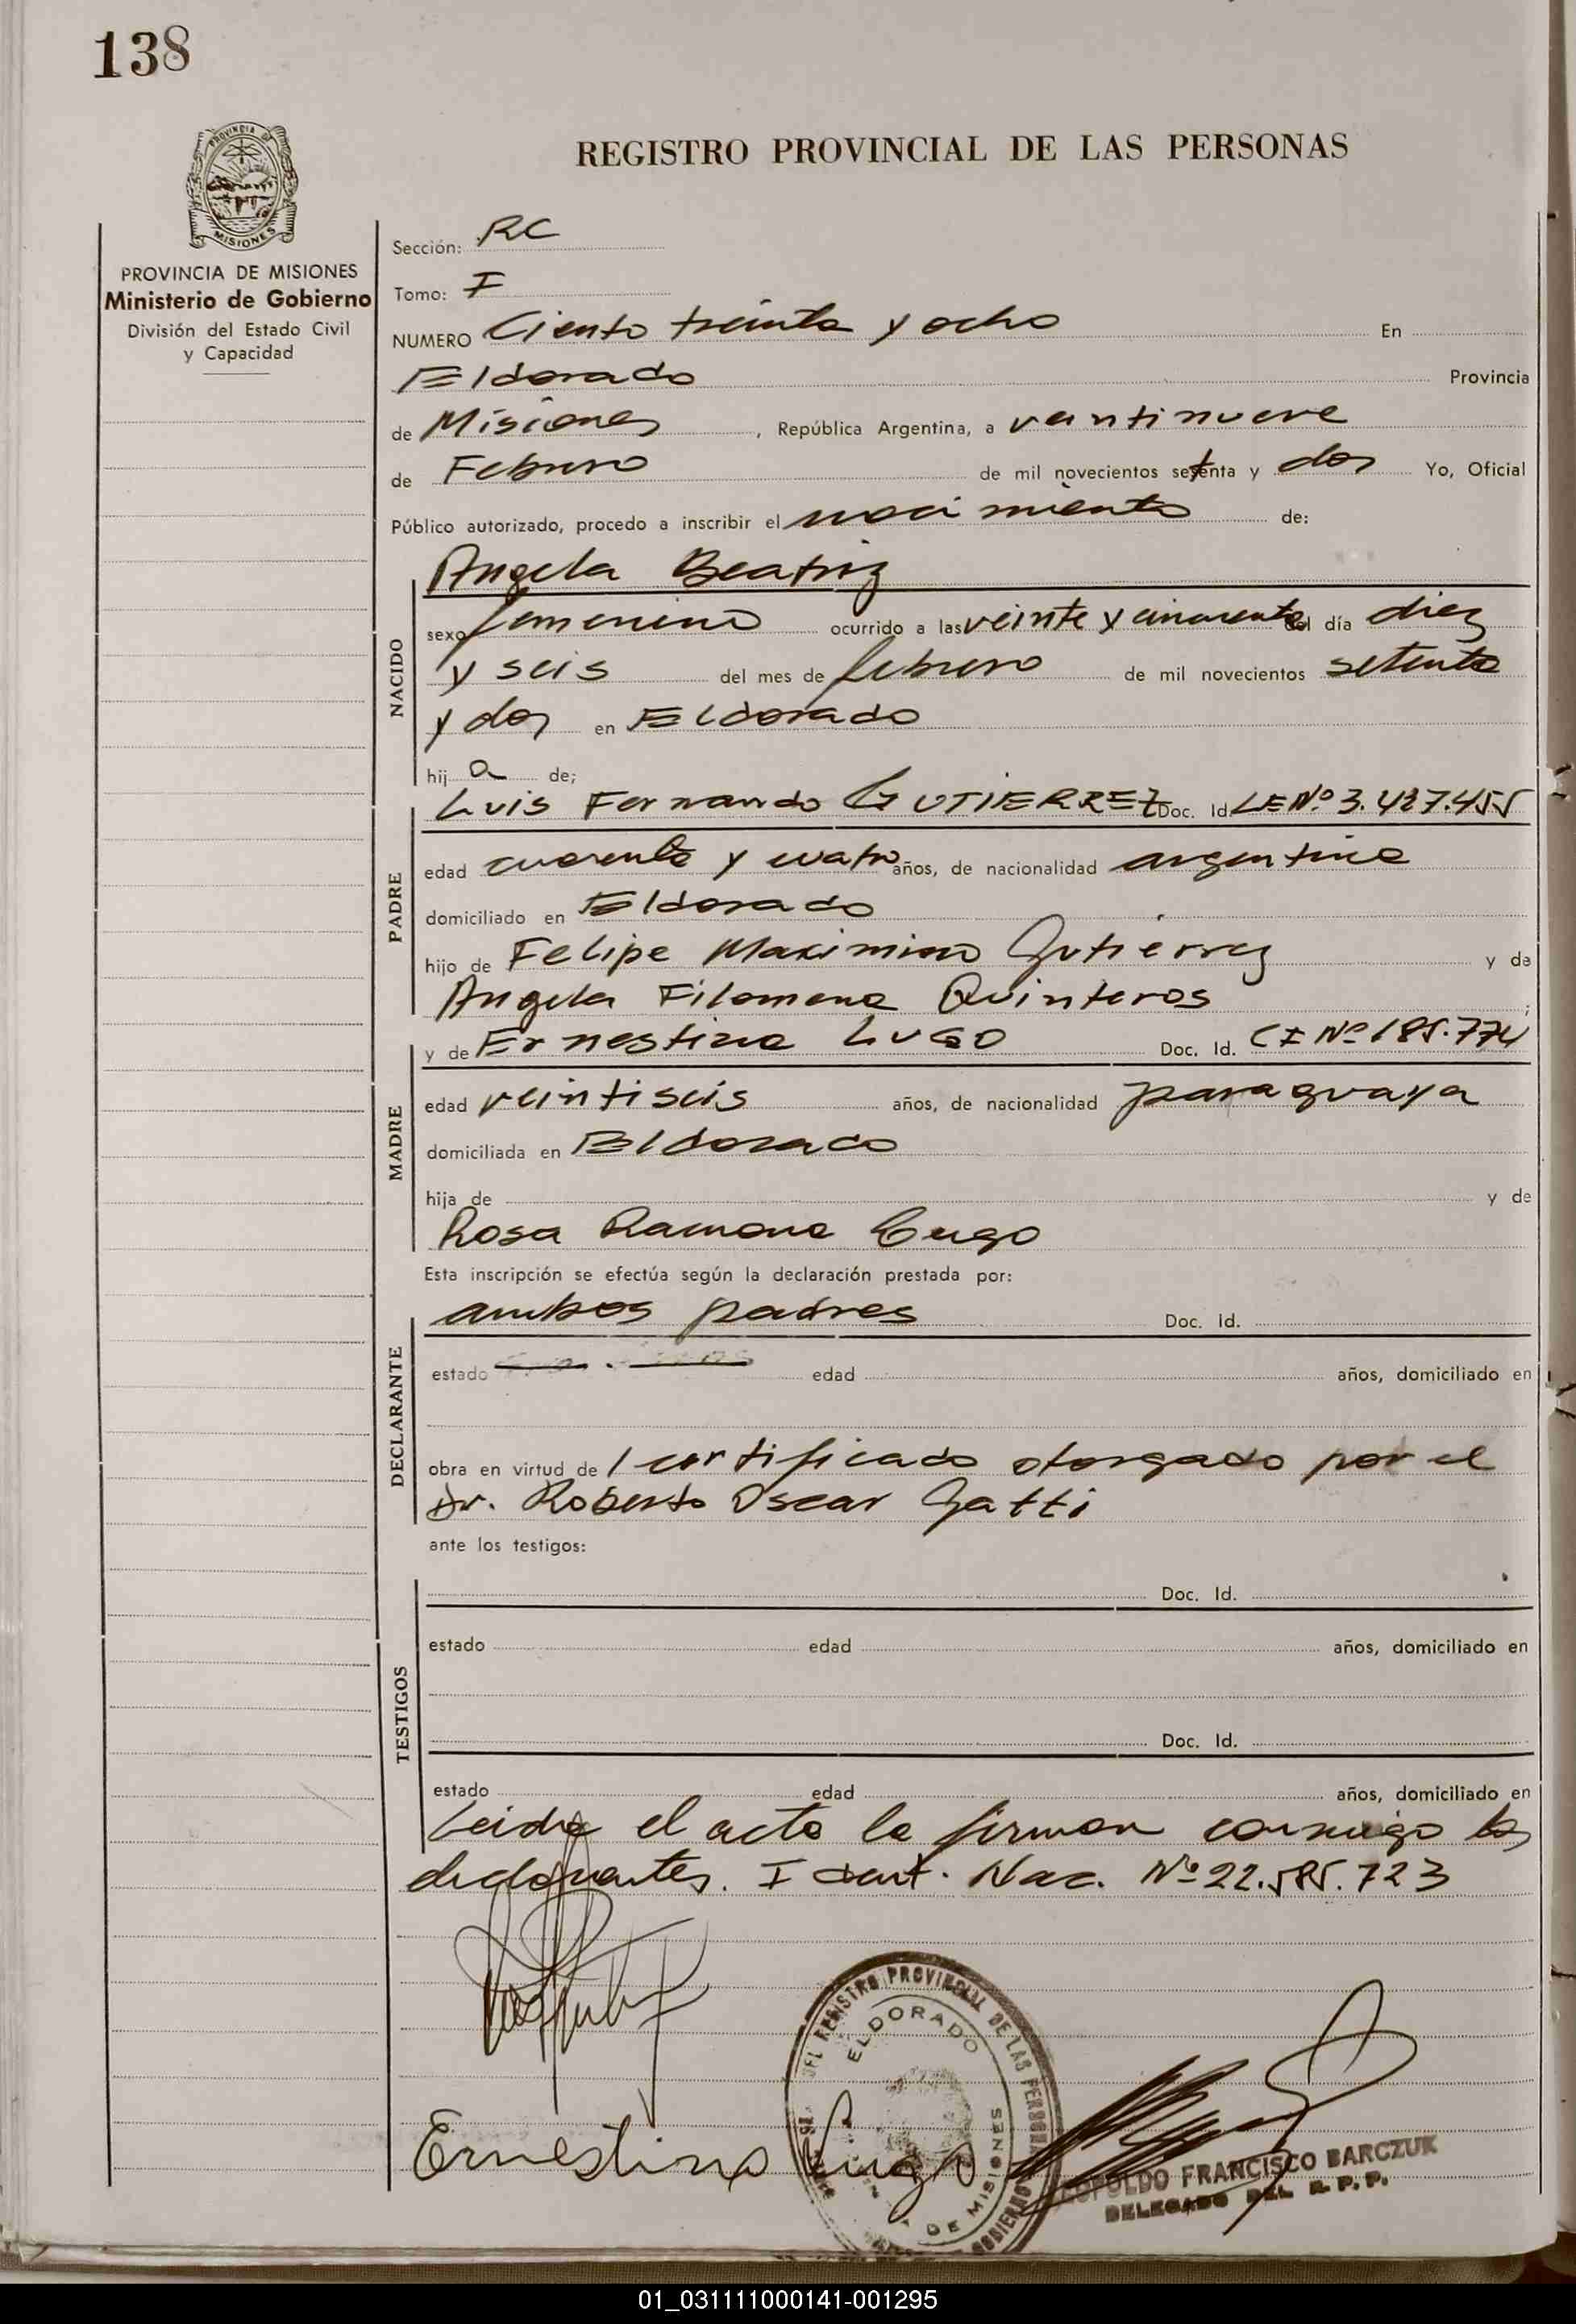 138
PROVINCIA DE
MISIONES
PROVINCIA DE MISIONES
Ministerio de Gobierno
División del Estado Civil
y Capacidad
REGISTRO PROVINCIAL DE LAS PERSONAS
Sección: RC
Tomo: I
NUMERO Ciento treinta y ocho En
Eldorado Provincia
de Misiones, República Argentina, a veintinueve
de Febrero de mil novecientos setenta y dos Yo, Oficial
Público autorizado, procedo a inscribir el nacimiento de:
Angela Beatriz
NACIDO
sexo femenino ocurrido a las veinte y cincuenta del día diez
y seis del mes de febrero de mil novecientos setenta
y dos en Eldorado
hij a de;
Luis Fernando GUTIERREZ Doc. Id. LE Nº 3.427.455
PADRE
edad cuarenta y cuatro años, de nacionalidad argentina
domiciliado en Eldorado
hijo de Felipe Maximino Gutiérrez y de
Angela Filomena Quinteros ;
y de Ernestina LUGO Doc. Id. CI Nº 185.774
MADRE
edad veintiseis años, de nacionalidad paraguaya
domiciliada en Eldorado
hija de y de
Rosa Ramona Lugo
Esta inscripción se efectúa según la declaración prestada por:
ambos padres Doc. Id.
DECLARANTE
estado edad años, domiciliado en
obra en virtud de 1 certificado otorgado por el
Dr. Roberto Oscar Gatti
ante los testigos:
Doc. Id.
TESTIGOS
estado edad años, domiciliado en
Doc. Id.
estado edad años, domiciliado en
Leida el acta la firman conmigo los
declarantes. Ident. Nac. Nº 22.585.723
DEL REGISTRO PROVINCIAL DE LAS PERSONAS
ELDORADO
DE MISIONES
Ernestina Lugo
LEOPOLDO FRANCISCO BARCZUK
DELEGADO DEL R. P. P.
01_031111000141-001295